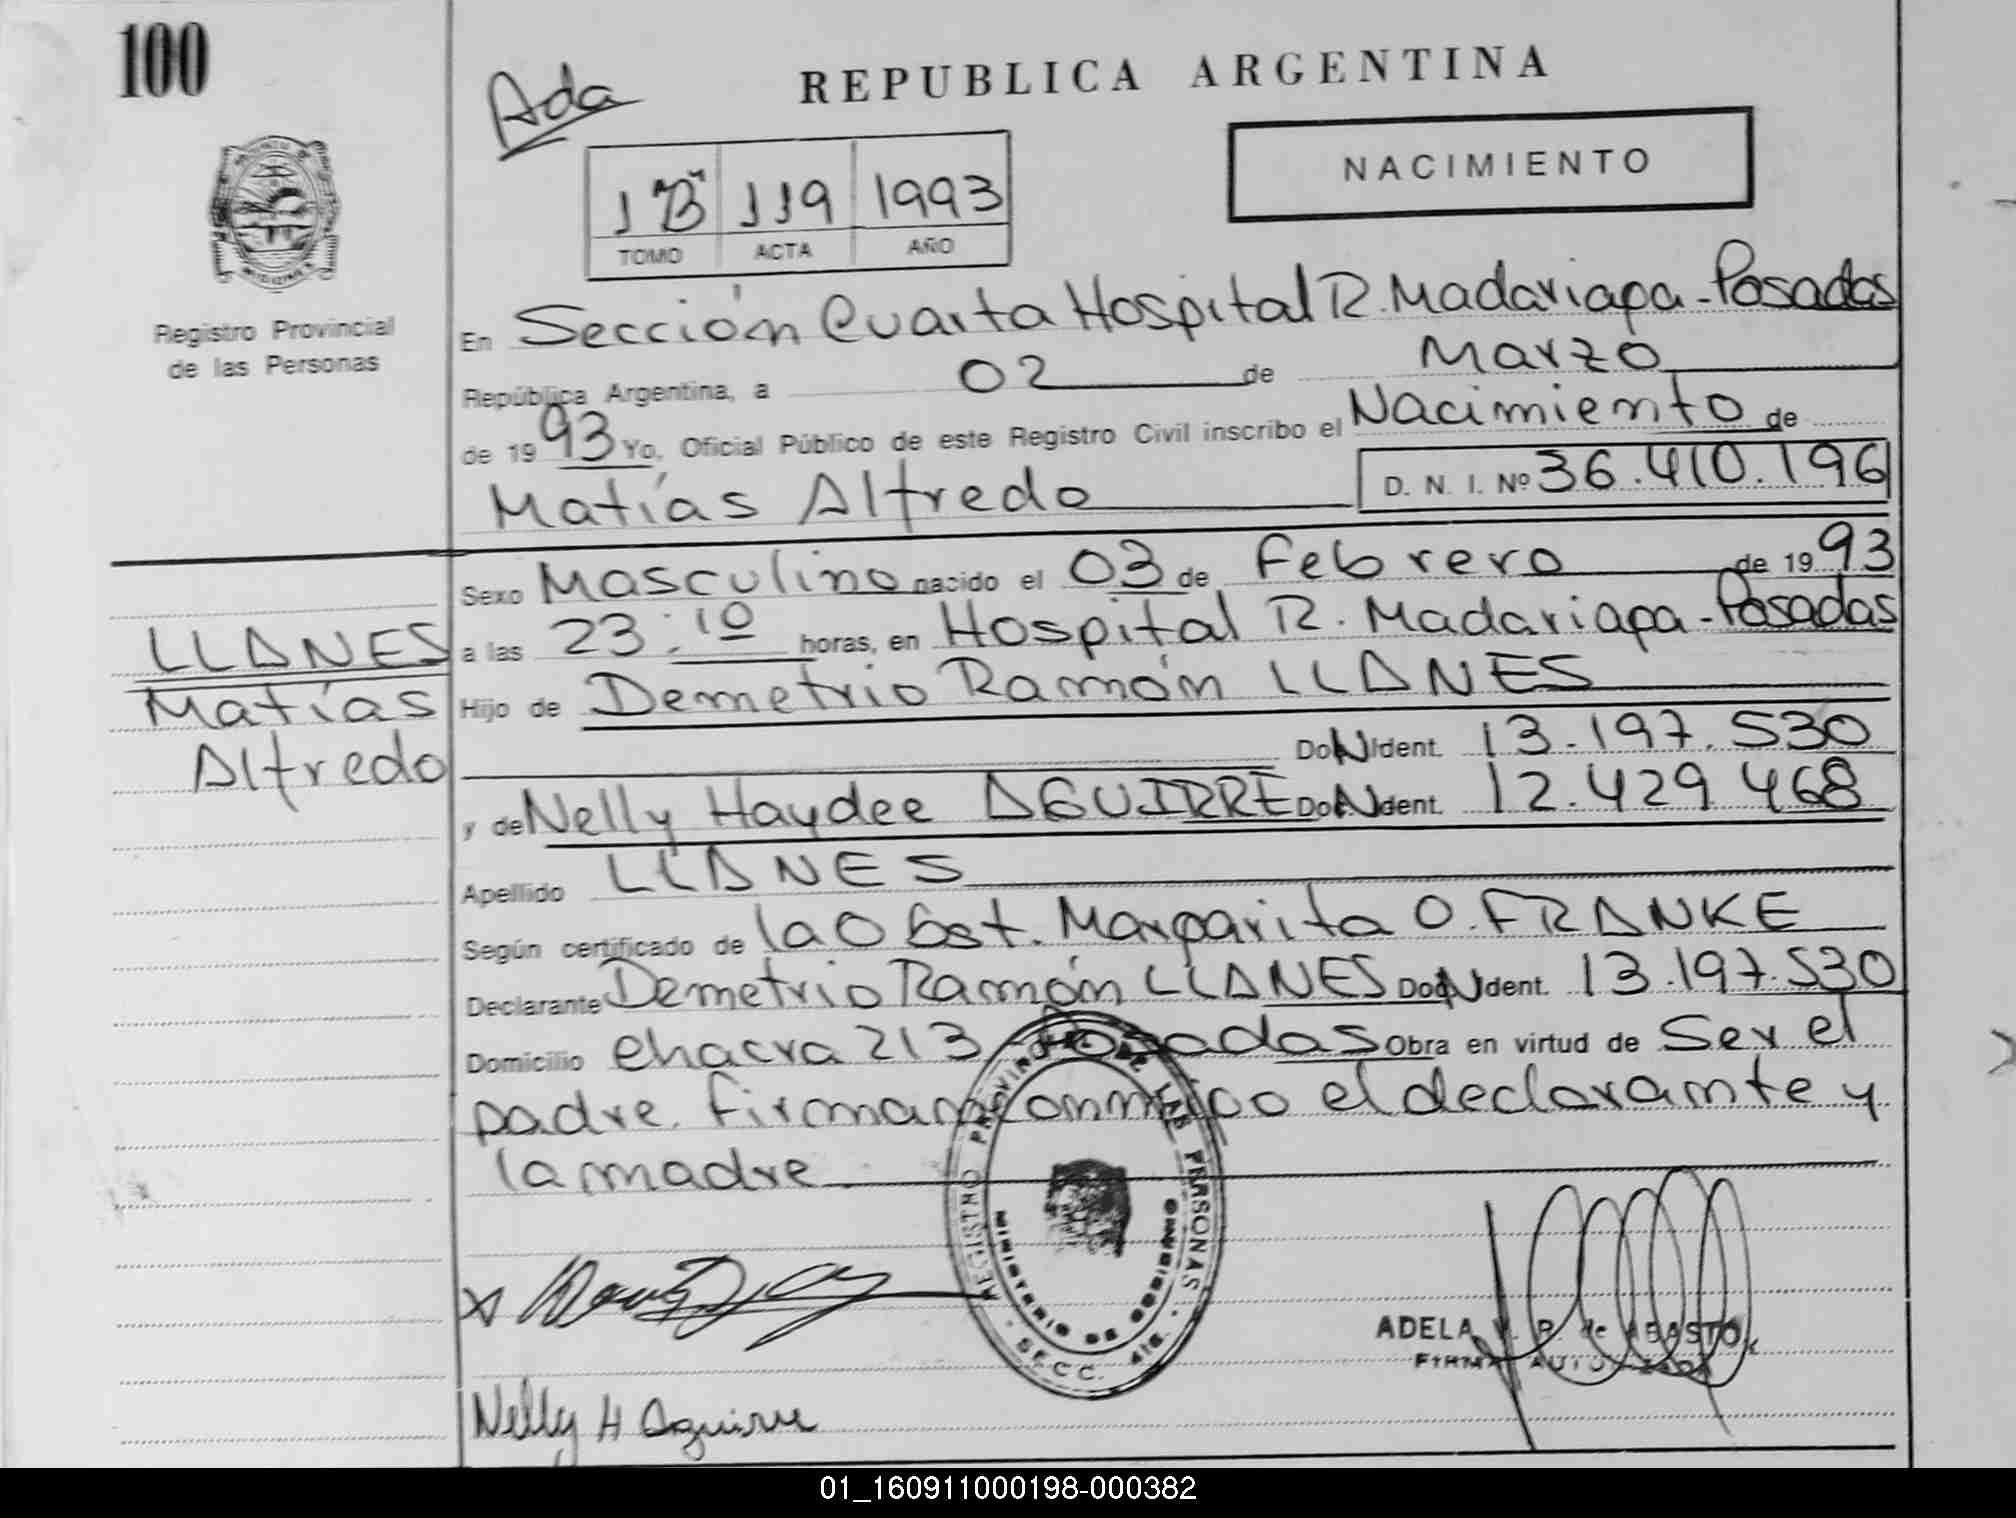 100
Ada
REPUBLICA ARGENTINA
NACIMIENTO
1 B" 119 1993
TOMO ACTA AÑO
Registro Provincial
de las Personas
En Sección Cuarta Hospital R. Madariaga - Posadas
República Argentina, a 02 de Marzo
de 1993 Yo, Oficial Público de este Registro Civil inscribo el Nacimiento de
Matías Alfredo D. N. I. Nº 36.410.196
Sexo Masculino nacido el 03 de Febrero de 1993
a las 23:10 horas, en Hospital R. Madariaga - Posadas
Hijo de Demetrio Ramón LLANES
Ident. 13.197.530
y de Nelly Haydee AGUIRRE Ident. 12.429.468
Apellido LLANES
Según certificado de la Obst. Margarita O. FRANKE
Declarante Demetrio Ramón LLANES Ident. 13.197.530
Domicilio chacra 213 - Posadas Obra en virtud de Ser el
padre. Firman conmigo el declarante y
la madre.
LLANES
Matías
Alfredo
REGISTRO PROVINCIAL DE LAS PERSONAS
MINISTERIO DE GOBIERNO
SECC. 4ta.
ADELA V. R. de ABASTO
FIRMA AUTORIZADA
Nelly H Aguirre
01_160911000198-000382